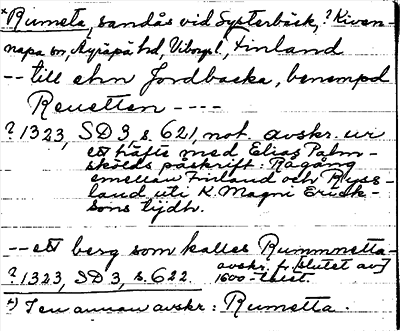 *Rumeta, sandås vid Systerbäck, ? Kiven-
napa sn, Äyräpä hd, Viborgs l, Finland
-- till ehn Jordbacka, benempd
Reuetten ----
? 1323, SD 3 s. 621, not. avskr. ur
ett häfte med Elias Palm-
skölds påskrift: Rågång
emellan Finland och Ryss-
land uti K. Magni Erick-
sons tijdh.
-- ett berg som kalles Rummnetta-
? 1323, SD 3, s. 622. avskr. fr. [slutet av]
1600-talet.
*) I en annan avskr: Rumetta.